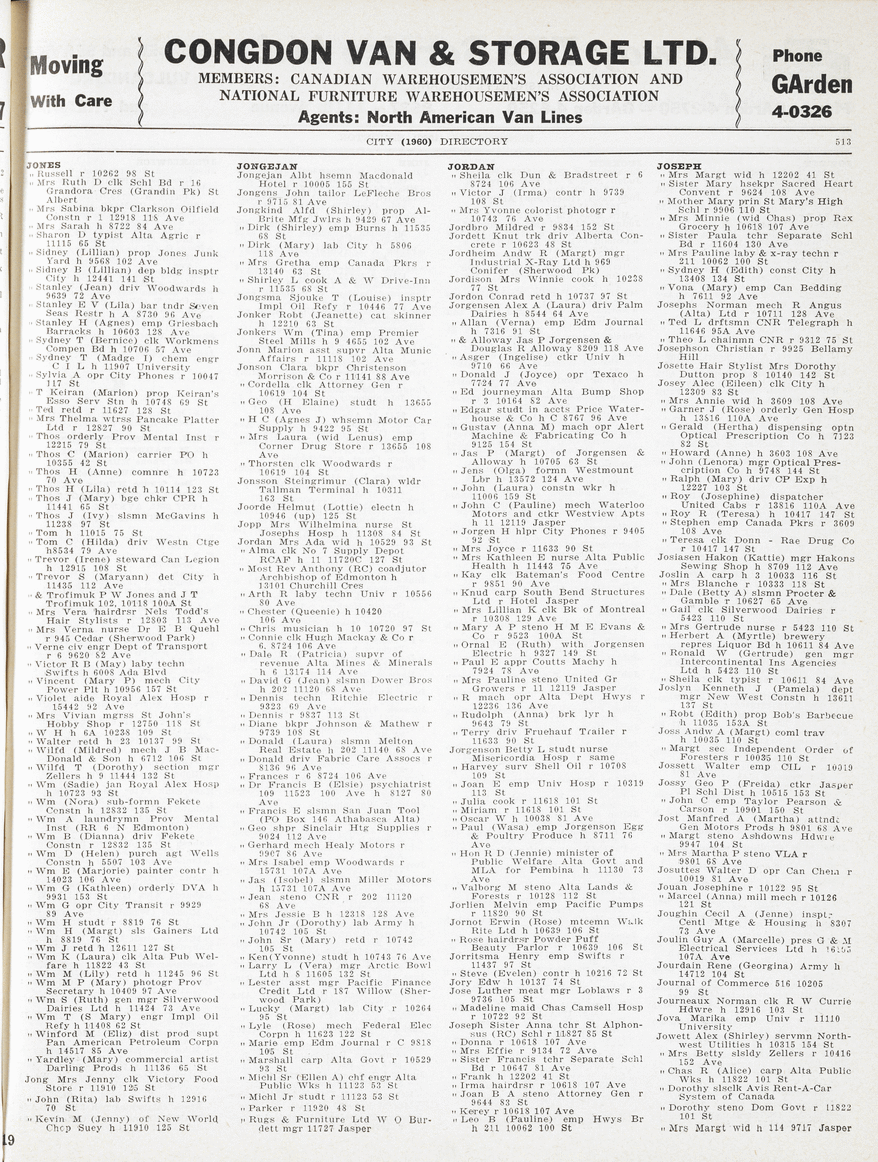 Moving
With Care
CONGDON VAN & STORAGE LTD.
MEMBERS: CANADIAN WAREHOUSEMEN'S ASSOCIATION AND
NATIONAL FURNITURE WAREHOUSEMEN'S ASSOCIATION
Agents: North American Van Lines
Phone
GArden
4-0326
CITY (1960) DIRECTORY
513
JONES
" Russell r 10262 98 St
" Mrs Ruth D clk Schl Bd r 16
Grandora Cres (Grandin Pk) St
Albert
" Mrs Sabina bkpr Clarkson Oilfield
Constn r 1 12918 118 Ave
" Mrs Sarah h 8722 84 Ave
" Sharon D typist Alta Agric r
11115 65 St
" Sidney (Lillian) prop Jones Junk
Yard h 9568 102 Ave
" Sidney B (Lillian) dep bldg insptr
City h 12441 141 St
" Stanley (Jean) driv Woodwards h
9639 72 Ave
" Stanley E V (Lila) bar tndr Seven
Seas Restr h A 8730 96 Ave
" Stanley H (Agnes) emp Griesbach
Barracks h 10603 128 Ave
" Sydney T (Bernice) clk Workmens
Compen Bd h 10706 57 Ave
" Sydney T (Madge I) chem engr
C I L h 11907 University
" Sylvia A opr City Phones r 10047
117 St
" T Keiran (Marion) prop Keiran's
Esso Serv Stn h 10748 69 St
" Ted retd r 11627 128 St
" Mrs Thelma wtrss Pancake Platter
Ltd r 12827 90 St
" Thos orderly Prov Mental Inst r
12215 79 St
" Thos C (Marion) carrier PO h
10355 42 St
" Thos H (Anne) comnre h 10723
70 Ave
" Thos H (Lila) retd h 10114 123 St
" Thos J (Mary) bge chkr CPR h
11441 65 St
" Thos J (Ivy) slsmn McGavins h
11238 97 St
" Tom h 11015 75 St
" Tom C (Hilda) driv Westn Ctge
h8534 79 Ave
" Trevor (Irene) steward Can Legion
h 12915 108 St
" Trevor S (Maryann) det City h
11435 112 Ave
" & Trofimuk P W Jones and J T
Trofimuk 102, 10118 100A St
" Mrs Vera hairdrsr Nels Todd's
Hair Stylists r 12803 113 Ave
" Mrs Verna nurse Dr E B Quehl
r 945 Cedar (Sherwood Park)
" Verne civ engr Dept of Transport
r 6 9620 82 Ave
" Victor R B (May) laby techn
Swifts h 6008 Ada Blvd
" Vincent (Mary P) mech City
Power Plt h 10956 157 St
" Violet aide Royal Alex Hosp r
15442 92 Ave
" Mrs Vivian mgrss St John's
Hobby Shop r 12750 118 St
" W H h 6A 10238 109 St
" Walter retd h 23 10137 99 St
" Wilfd (Mildred) mech J B Mac-
Donald & Son h 6712 106 St
" Wilfd T (Dorothy) section mgr
Zellers h 9 11444 132 St
" Wm (Sadie) jan Royal Alex Hosp
h 10723 93 St
" Wm (Nora) sub-formn Fekete
Constn h 12832 135 St
" Wm A laundrymn Prov Mental
Inst (RR 6 N Edmonton)
" Wm B (Dianna) driv Fekete
Constn r 12832 135 St
" Wm D (Helen) purch agt Wells
Constn h 5507 103 Ave
" Wm E (Marjorie) painter contr h
14023 106 Ave
" Wm G (Kathleen) orderly DVA h
9931 153 St
" Wm G opr City Transit r 9929
89 Ave
" Wm H studt r 8819 76 St
" Wm H (Margt) sls Gainers Ltd
h 8819 76 St
" Wm J retd h 12611 127 St
" Wm K (Laura) clk Alta Pub Wel-
fare h 11822 43 St
" Wm M (Lily) retd h 11245 96 St
" Wm M P (Mary) photogr Prov
Secretary h 10409 97 Ave
" Wm S (Ruth) gen mgr Silverwood
Dairies Ltd h 11424 73 Ave
" Wm T (S Mary) engr Impl Oil
Refy h 11408 62 St
" Winford M (Eliz) dist prod supt
Pan American Petroleum Corpn
h 14517 85 Ave
" Yardley (Mary) commercial artist
Darling Prods h 11136 65 St
Jong Mrs Jenny clk Victory Food
Store r 11910 125 St
" John (Rita) lab Swifts h 12916
70 St
" Kevin M (Jenny) of New World
Chop Suey h 11910 125 St
JONGEJAN
Jongejan Albt hsemn Macdonald
Hotel r 10005 155 St
Jongens John tailor LeFleche Bros
r 9715 81 Ave
Jongkind Alfd (Shirley) prop Al-
Brite Mfg Jwlrs h 9429 67 Ave
" Dirk (Shirley) emp Burns h 11535
68 St
" Dirk (Mary) lab City h 5806
118 Ave
" Mrs Gretha emp Canada Pkrs r
13140 63 St
" Shirley L cook A & W Drive-Inn
r 11535 68 St
Jongsma Sjouke T (Louise) insptr
Impl Oil Refy r 10446 77 Ave
Jonker Robt (Jeanette) cat skinner
h 12210 63 St
Jonkers Wm (Tina) emp Premier
Steel Mills h 9 4655 102 Ave
Jonn Marion asst supvr Alta Munic
Affairs r 11118 102 Ave
Jonson Clara bkpr Christenson
Morrison & Co r 11141 88 Ave
" Cordella clk Attorney Gen r
10619 104 St
" Geo (H Elaine) studt h 13655
108 Ave
" H C (Agnes J) whsemn Motor Car
Supply h 9422 95 St
" Mrs Laura (wid Lenus) emp
Corner Drug Store r 13655 108
Ave
" Thorsten clk Woodwards r
10619 104 St
Jonsson Steingrimur (Clara) wldr
Tallman Terminal h 10311
163 St
Joorde Helmut (Lottie) electn h
10946 (up) 125 St
Jopp Mrs Wilhelmina nurse St
Josephs Hosp h 11308 84 St
Jordan Mrs Ada wid h 10529 93 St
" Alma clk No 7 Supply Depot
RCAF h 11 11720C 127 St
" Most Rev Anthony (RC) coadjutor
Archbishop of Edmonton h
13101 Churchill Cres
" Arth R laby techn Univ r 10556
80 Ave
" Chester (Queenie) h 10420
106 Ave
" Chris musician h 10 10720 97 St
" Connie clk Hugh Mackay & Co r
6, 8724 106 Ave
" Dale R (Patricia) supvr of
revenue Alta Mines & Minerals
h 6 13174 114 Ave
" David G (Jean) slsmn Dower Bros
h 202 11120 68 Ave
" Dennis techn Ritchie Electric r
9323 69 Ave
" Dennis r 9837 113 St
" Diane bkpr Johnson & Mathew r
9739 108 St
" Donald (Laura) slsmn Melton
Real Estate h 202 11140 68 Ave
" Donald driv Fabric Care Assocs r
8136 96 Ave
" Frances r 6 8724 106 Ave
" Dr Francis B (Elsie) psychiatrist
109 11523 100 Ave h 8127 80
Ave
" Francis E slsmn San Juan Tool
(PO Box 146 Athabasca Alta)
" Geo shpr Sinclair Htg Supplies r
9024 112 Ave
" Gerhard mech Healy Motors r
9907 86 Ave
" Mrs Isabel emp Woodwards r
15731 107A Ave
" Jas (Isobel) slsmn Miller Motors
h 15731 107A Ave
" Jean steno CNR r 202 11120
68 Ave
" Mrs Jessie B h 12318 128 Ave
" John Jr (Dorothy) lab Army h
10742 105 St
" John Sr (Mary) retd r 10742
105 St
" Ken(Yvonne) studt h 10743 76 Ave
" Larry L (Vera) mgr Arctic Bowl
Ltd h 8 11605 132 St
" Lester asst mgr Pacific Finance
Credit Ltd r 187 Willow (Sher-
wood Park)
" Lucky (Margt) lab City r 10264
95 St
" Lyle (Rose) mech Federal Elec
Corpn h 11623 122 St
" Marie emp Edm Journal r C 9818
105 St
" Marshall carp Alta Govt r 10529
93 St
" Michl Sr (Ellen A) chf engr Alta
Public Wks h 11123 53 St
" Michl Jr studt r 11123 53 St
" Parker r 11920 48 St
" Rugs & Furniture Ltd W O Bur-
dett mgr 11727 Jasper
JORDAN
" Sheila clk Dun & Bradstreet r 6
8724 106 Ave
" Victor J (Irma) contr h 9739
108 St
" Mrs Yvonne colorist photogr r
10742 76 Ave
Jordbro Mildred r 9834 152 St
Jordett Knut trk driv Alberta Con-
crete r 10623 48 St
Jordheim Andw R (Margt) mgr
Industrial X-Ray Ltd h 969
Conifer (Sherwood Pk)
Jordison Mrs Winnie cook h 10238
77 St
Jordon Conrad retd h 10737 97 St
Jorgensen Alex A (Laura) driv Palm
Dairies h 8544 64 Ave
" Allan (Verna) emp Edm Journal
h 7316 91 St
" & Alloway Jas P Jorgensen &
Douglas R Alloway 8209 118 Ave
" Asger (Ingelise) ctkr Univ h
9710 66 Ave
" Donald J (Joyce) opr Texaco h
7724 77 Ave
" Ed journeyman Alta Bump Shop
r 3 10164 82 Ave
" Edgar studt in accts Price Water-
house & Co h C 8767 96 Ave
" Gustav (Anna M) mach opr Alert
Machine & Fabricating Co h
9125 154 St
" Jas P (Margt) of Jorgensen &
Alloway h 10705 63 St
" Jens (Olga) formn Westmount
Lbr h 13572 124 Ave
" John (Laura) constn wkr h
11006 159 St
" John C (Pauline) mech Waterloo
Motors and ctkr Westview Apts
h 11 12119 Jasper
" Jorgen H hlpr City Phones r 9405
92 St
" Mrs Joyce r 11633 90 St
" Mrs Kathleen E nurse Alta Public
Health h 11443 75 Ave
" Kay clk Bateman's Food Centre
r 9851 90 Ave
" Knud carp South Bend Structures
Ltd r Hotel Jasper
" Mrs Lillian K clk Bk of Montreal
r 10308 129 Ave
" Mary A P steno H M E Evans &
Co r 9523 100A St
" Ornal E (Ruth) with Jorgensen
Electric h 9327 149 St
" Paul E appr Coutts Machy h
7924 78 Ave
" Mrs Pauline steno United Gr
Growers r 11 12119 Jasper
" R mach opr Alta Dept Hwys r
12236 136 Ave
" Rudolph (Anna) brk lyr h
9643 79 St
" Terry driv Fruehauf Trailer r
11633 90 St
Jorgenson Betty L studt nurse
Misericordia Hosp r same
" Harvey surv Shell Oil r 10708
109 St
" Joan E emp Univ Hosp r 10319
113 St
" Julia cook r 11618 101 St
" Miriam r 11618 101 St
" Oscar W h 10038 81 Ave
" Paul (Wasa) emp Jorgenson Egg
& Poultry Produce h 8711 76
Ave
" Hon R D (Jennie) minister of
Public Welfare Alta Govt and
MLA for Pembina h 11130 73
Ave
" Valborg M steno Alta Lands &
Forests r 10128 112 St
Jorlien Melvin emp Pacific Pumps
r 11820 90 St
Jornot Erwin (Rose) mtcemn Walk
Rite Ltd h 10639 106 St
" Rose hairdrsr Powder Puff
Beauty Parlor r 10639 106 St
Jorritsma Henry emp Swifts r
11437 97 St
" Steve (Evelen) contr h 10216 72 St
Jory Edw h 10137 74 St
Jose Luther meat mgr Loblaws r 3
9736 105 St
" Madeline maid Chas Camsell Hosp
r 10722 92 St
Joseph Sister Anna tchr St Alphon-
sus (RC) Schl r 11827 85 St
" Donna r 10618 107 Ave
" Mrs Effie r 9134 72 Ave
" Sister Francis tchr Separate Schl
Bd r 10647 81 Ave
" Frank h 12202 41 St
" Irma hairdrsr r 10618 107 Ave
" Joan B A steno Attorney Gen r
9644 83 St
" Kerey r 10618 107 Ave
" Leo B (Pauline) emp Hwys Br
h 211 10062 100 St
JOSEPH
" Mrs Margt wid h 12202 41 St
" Sister Mary hsekpr Sacred Heart
Convent r 9624 108 Ave
" Mother Mary prin St Mary's High
Schl r 9906 110 St
" Mrs Minnie (wid Chas) prop Rex
Grocery h 10618 107 Ave
" Sister Paula tchr Separate Schl
Bd r 11604 130 Ave
" Mrs Pauline laby & x-ray techn r
211 10062 100 St
" Sydney H (Edith) const City h
13408 134 St
" Vona (Mary) emp Can Bedding
h 7611 92 Ave
Josephs Norman mech R Angus
(Alta) Ltd r 10711 128 Ave
" Ted L drftsmn CNR Telegraph h
11646 95A Ave
" Theo L chainmn CNR r 9312 75 St
Josephson Christian r 9925 Bellamy
Hill
Josette Hair Stylist Mrs Dorothy
Dutton prop 8 10140 142 St
Josey Alec (Eileen) clk City h
12309 83 St
" Mrs Annie wid h 3609 108 Ave
" Garner J (Rose) orderly Gen Hosp
h 13516 110A Ave
" Gerald (Hertha) dispensing optn
Optical Prescription Co h 7123
82 St
" Howard (Anne) h 3603 108 Ave
" John (Lenora) mgr Optical Pres-
cription Co h 9748 144 St
" Ralph (Mary) driv CP Exp h
12227 103 St
" Roy (Josephine) dispatcher
United Cabs r 13816 110A Ave
" Roy R (Teresa) h 10417 147 St
" Stephen emp Canada Pkrs r 3609
108 Ave
" Teresa clk Donn - Rae Drug Co
r 10417 147 St
Josiasen Hakon (Kattie) mgr Hakons
Sewing Shop h 8709 112 Ave
Joslin A carp h 3 10033 116 St
" Mrs Blanche r 10333 118 St
" Dale (Betty A) slsmn Procter &
Gamble r 10627 65 Ave
" Gail clk Silverwood Dairies r
5423 110 St
" Mrs Gertrude nurse r 5423 110 St
" Herbert A (Myrtle) brewery
repres Liquor Bd h 10611 84 Ave
" Ronald W (Gertrude) gen mgr
Intercontinental Ins Agencies
Ltd h 5423 110 St
" Sheila clk typist r 10611 84 Ave
Joslyn Kenneth J (Pamela) dept
mgr New West Constn h 13611
137 St
" Robt (Edith) prop Bob's Barbecue
h 11035 153A St
Joss Andw A (Margt) coml trav
h 10035 110 St
" Margt sec Independent Order of
Foresters r 10035 110 St
Jossett Walter emp CIL r 10019
81 Ave
Jossy Geo P (Freida) ctkr Jasper
Pl Schl Dist h 10515 153 St
" John C emp Taylor Pearson &
Carson r 10901 150 St
Jost Manfred A (Martha) attndt
Gen Motors Prods h 9801 68 Ave
" Margt steno Ashdowns Hdwre
9947 104 St
" Mrs Martha P steno VLA r
9801 68 Ave
Josuttes Walter D opr Can Chem r
10019 81 Ave
Jouan Josephine r 10122 95 St
" Marcel (Anna) mill mech r 10126
121 St
Joughin Cecil A (Jenne) insptr
Centl Mtge & Housing h 8307
73 Ave
Joulin Guy A (Marcelle) pres G & M
Electrical Services Ltd h
107A Ave
Jourdain Rene (Georgina) Army h
14712 104 St
Journal of Commerce 516 10205
99 St
Journeaux Norman clk R W Currie
Hdwre h 12916 103 St
Jova Marika emp Univ r 11110
University
Jowett Alex (Shirley) servmn North-
west Utilities h 10315 154 St
" Mrs Betty slsldy Zellers r 10416
152 Ave
" Chas R (Alice) carp Alta Public
Wks h 11822 101 St
" Dorothy slsclk Avis Rent-A-Car
System of Canada
" Dorothy steno Dom Govt r 11822
101 St
" Mrs Margt wid h 114 9717 Jasper
19